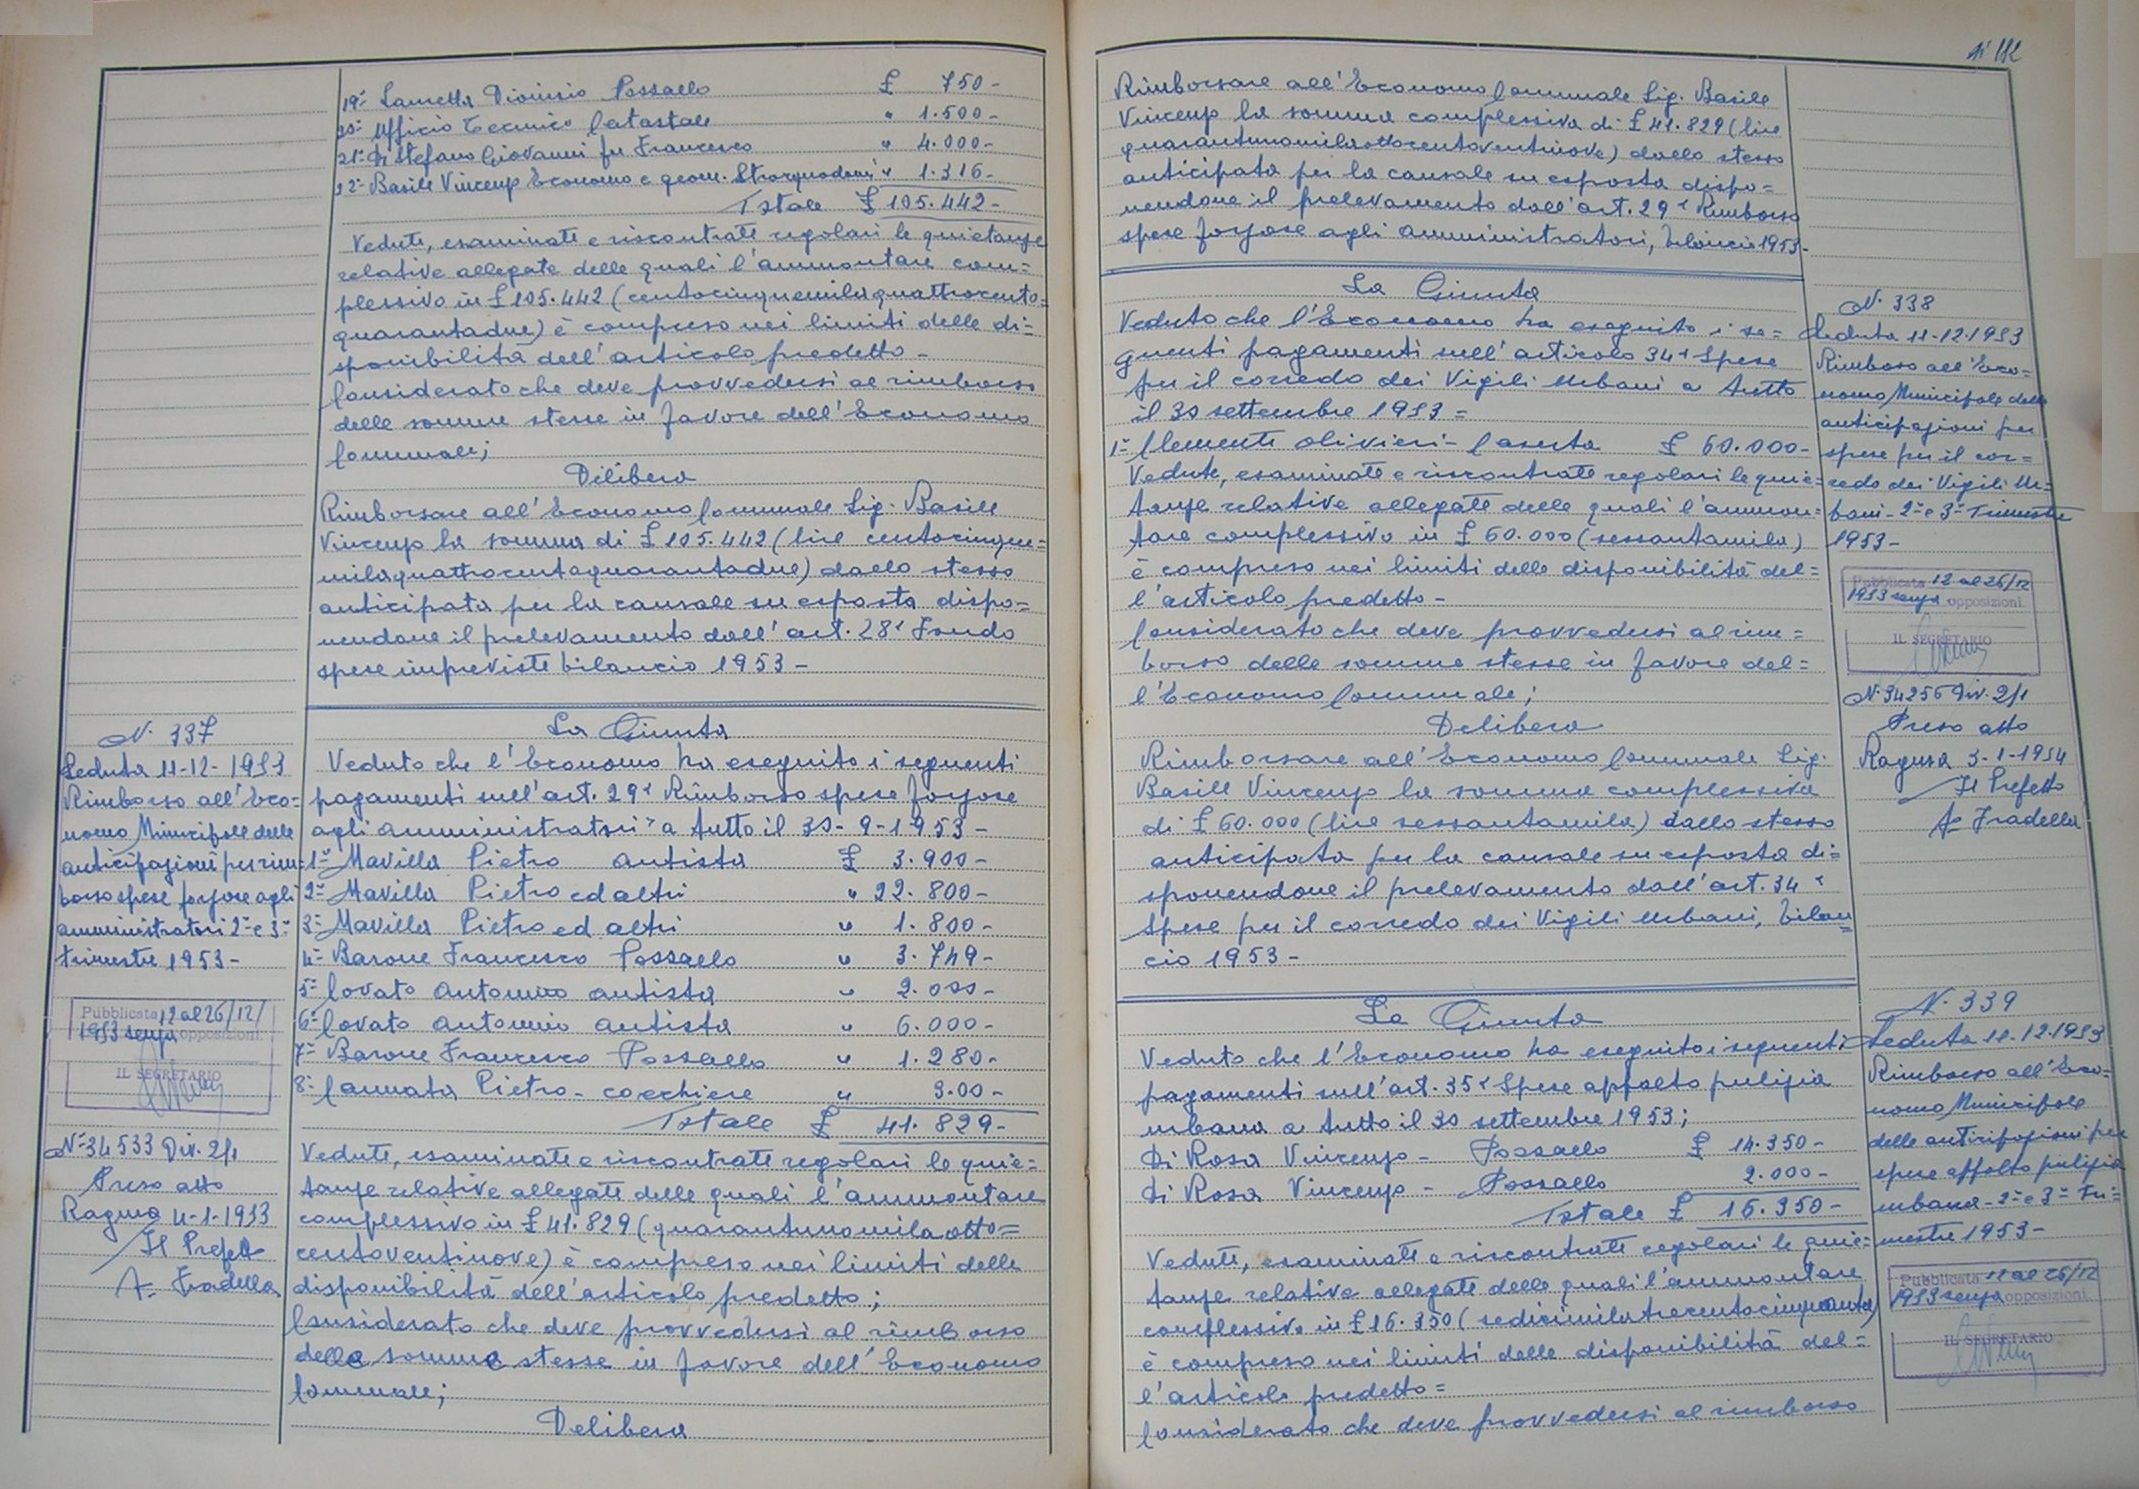 19° Lauretta Dionisio Possallo £ 750-
20° Ufficio Tecnico Catastale " 1.500-
21° Di Stefano Giovanni fu Francesco " 4.000-
22° Basile Vincenzo Economo e geom. " 1.316-
Totale £ 105.442-
Vedute, esaminate e riscontrate regolari le quietanze
relative allegate delle quali l'ammontare com=
plessivo in £ 105.442 (centocinquemilaquattrocento=
quarantadue) è compreso nei limiti delle di=
sponibilità dell'articolo predetto-
Considerato che deve provvedersi al rimborso
delle somme stesse in favore dell'Economo
Comunale;
Delibera
Rimborsare all'Economo Comunale Sig. Basile
Vincenzo la somma di £ 105.442 (lire centocinque=
milaquattrocentoquarantadue) dallo stesso
anticipata per la causale su esposta dispo=
nendone il prelevamento dall'art. 28 "Fondo
spese impreviste bilancio 1953-
N. 337
Seduta 11-12-1953
Rimborso all'Eco=
nomo Municipale delle
anticipazioni per rim=
borso spese forzose agli
amministratori 2° e 3°
trimestre 1953-
Pubblicata 12 al 26/12/
1953 senza opposizioni.
IL SEGRETARIO
N° 34533 Div. 2/1
Preso atto
Ragusa 4-1-1953
Il Prefetto
A. Fradella
La Giunta
Veduto che l'Economo ha eseguito i seguenti
pagamenti sull'art. 29 "Rimborso spese forzose
agli amministratori" a tutto il 30-9-1953-
1° Mavilla Pietro autista £ 3.900-
2° Mavilla Pietro ed altri " 22.800-
3° Mavilla Pietro ed altri " 1.800-
4° Barone Francesco Possallo " 3.749-
5° Covato Antonino autista " 2.000-
6° Covato Antonino autista " 6.000-
7° Barone Francesco Possallo " 1.280-
8° Cannata Pietro- cocchiere " 300-
Totale £ 41.829-
Vedute, esaminate e riscontrate regolari le quie=
tanze relative allegate delle quali l'ammontare
complessivo in £ 41.829 (quarantunomilaotto=
centoventinove) è compreso nei limiti delle
disponibilità dell'articolo predetto;
Considerato che deve provvedersi al rimborso
delle somme stesse in favore dell'Economo
Comunale;
Delibera
Rimborsare all'Economo Comunale Sig. Basile
Vincenzo la somma complessiva di £ 41.829 (lire
quarantunomilaottocentoventinove) dallo stesso
anticipata per la causale su esposta dispo=
nendone il prelevamento dall'art. 29 "Rimborso
spese forzose agli amministratori, bilancio 1953-
La Giunta
Veduto che l'Economo ha eseguito i se=
guenti pagamenti sull'articolo 34 "Spese
per il corredo dei Vigili Urbani a tutto
il 30 settembre 1953=
1° Clemente Olivieri- Caserta £ 60.000-
Vedute, esaminate e riscontrate regolari le quie=
tanze relative allegate delle quali l'ammon=
tare complessivo in £ 60.000 (sessantamila)
è compreso nei limiti delle disponibilità del=
l'articolo predetto-
Considerato che deve provvedersi al rim=
borso delle somme stesse in favore del=
l'Economo Comunale;
Delibera
Rimborsare all'Economo Comunale Sig.
Basile Vincenzo la somma complessiva
di £ 60.000 (lire sessantamila) dallo stesso
anticipata per la causale su esposta di=
sponendone il prelevamento dall'art. 34 "
Spese per il corredo dei Vigili Urbani, bilan=
cio 1953-
N. 338
Seduta 11-12-1953
Rimborso all'Eco=
nomo Municipale delle
anticipazioni per
spese per il cor=
redo dei Vigili Ur=
bani- 2° e 3° Trimestre
1953-
Pubblicata 12 al 26/12
1953 senza opposizioni.
IL SEGRETARIO
N. 34256 Div. 2/1
Preso atto
Ragusa 3-1-1954
Il Prefetto
A. Fradella
La Giunta
Veduto che l'Economo ha eseguito i seguenti
pagamenti sull'art. 35 "Spese appalto pulizia
urbana a tutto il 30 settembre 1953;
Di Rosa Vincenzo- Possallo £ 14.350-
Di Rosa Vincenzo- Possallo 2.000-
Totale £ 16.350-
Vedute, esaminate e riscontrate regolari le quie=
tanze relative allegate delle quali l'ammontare
complessivo in £ 16.350 (sedicimilatrecentocinquanta)
è compreso nei limiti delle disponibilità del=
l'articolo predetto=
Considerato che deve provvedersi al rimborso
N. 339
Seduta 11.12.1953
Rimborso all'Eco=
nomo Municipale
delle anticipazioni per
spese appalto pulizia
urbana- 2° e 3° Tri=
mestre 1953-
Pubblicata 12 al 26/12
1953 senza opposizioni.
IL SEGRETARIO